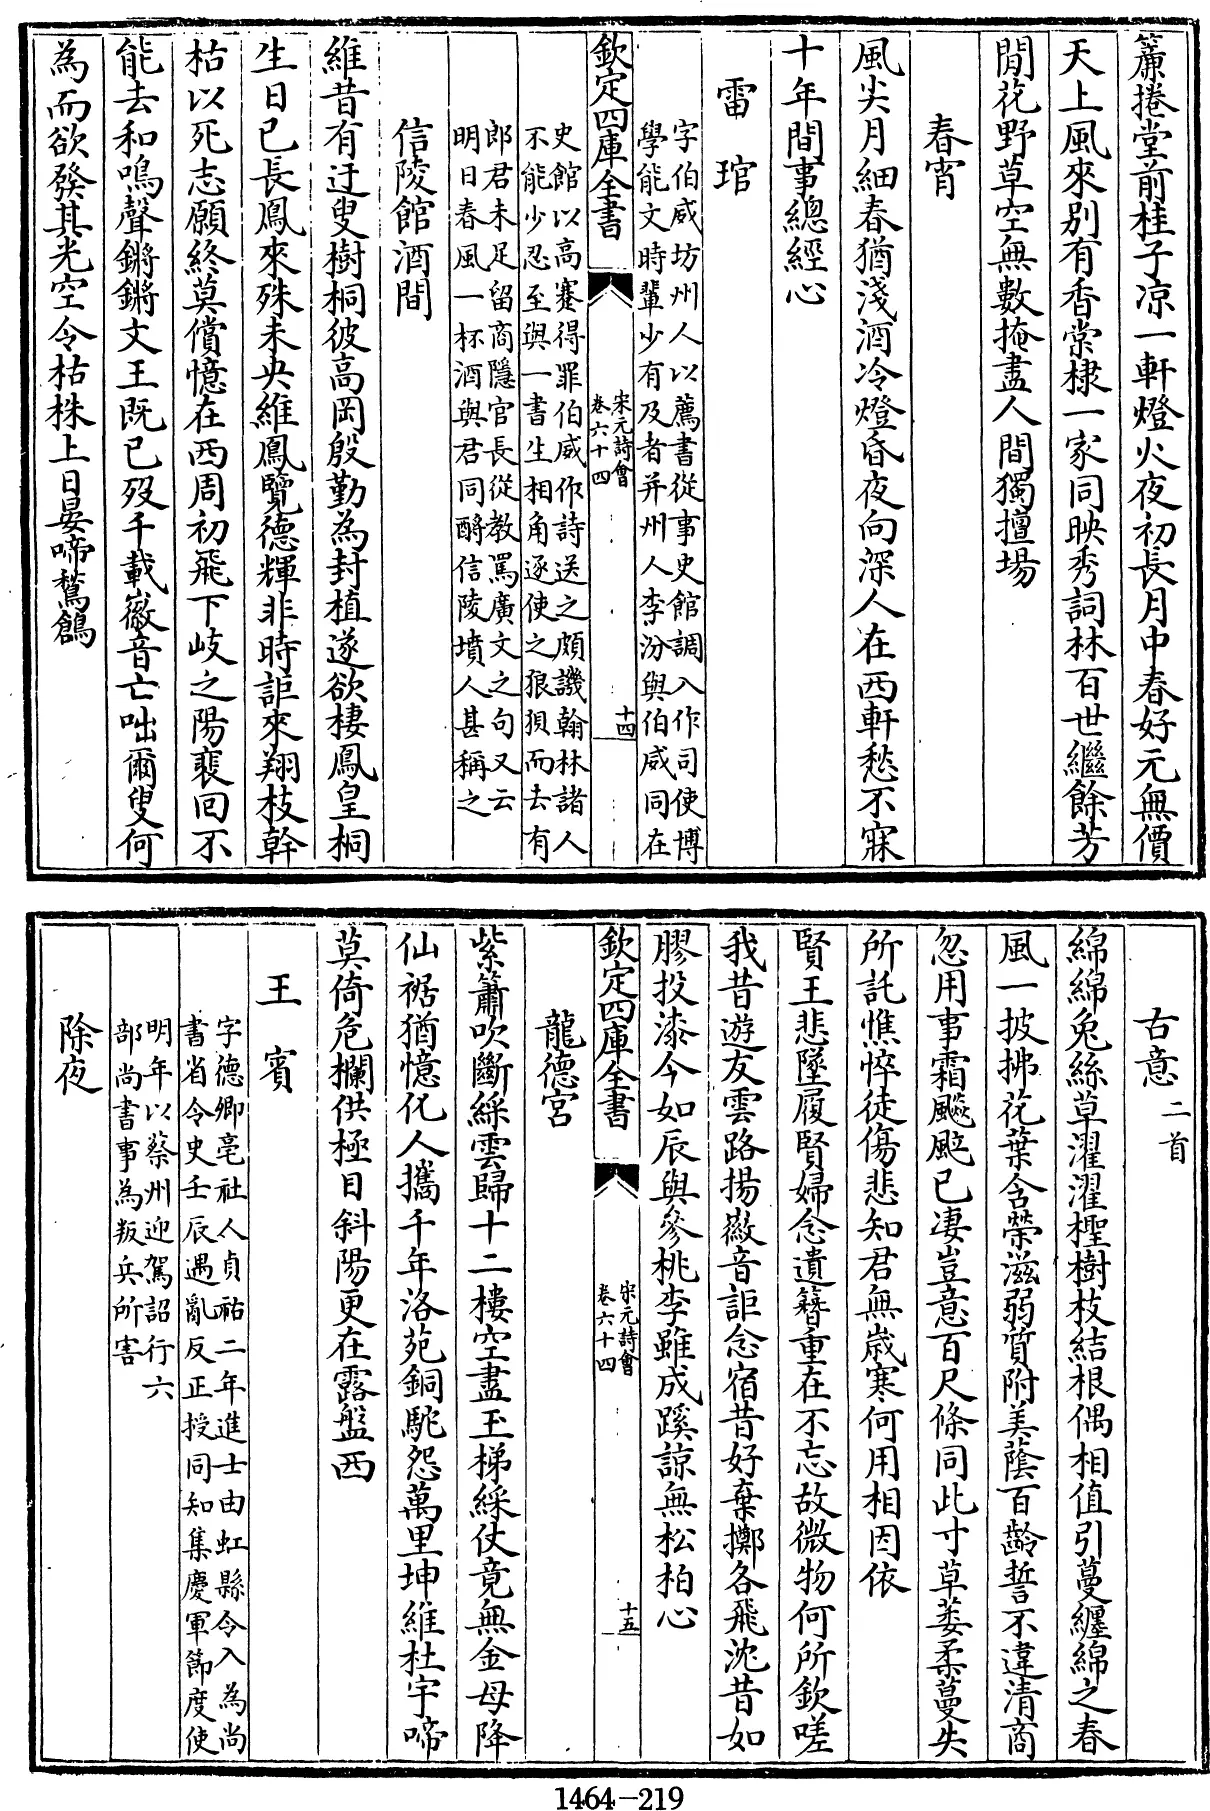 簾捲堂前桂子凉一軒燈火夜初長月中春好元無價
天上風來别有香棠棣一家同映秀詞林百世繼餘芳
閒花野草空無數掩盡人間獨擅場
春宵
風尖月細春猶淺酒冷燈昏夜向深人在西軒愁不寐
十年間事總經心
雷琯
字伯威坊州人以薦書從事史館調入作司使博
學能文時輩少有及者并州人李汾與伯威同在
欽定四庫全書
宋元詩會
卷六十四
十四
史館以高蹇得罪伯威作詩送之頗譏翰林諸人
不能少忍至與一書生相角逐使之狼狽而去有
郎君未足留商隱官長從教罵廣文之句又云
明日春風一杯酒與君同酹信陵墳人甚稱之
信陵館酒間
維昔有迂叟樹桐彼高岡殷勤為封植遂欲棲鳳皇桐
生日已長鳳來殊未央維鳳覽德輝非時詎來翔枝幹
枯以死志願終莫償憶在西周初飛下岐之陽裴回不
能去和鳴聲鏘鏘文王既已歿千載徽音亡咄爾叟何
為而欲發其光空令枯株上日晏啼鶖鶬
古意二首
綿綿兔絲草濯濯檉樹枝結根偶相值引蔓纏綿之春
風一披拂花葉含榮滋弱質附美蔭百齡誓不違清商
忽用事霜飈颭已凄豈意百尺條同此寸草萎柔蔓失
所託憔悴徒傷悲知君無歲寒何用相因依
賢王悲墜履賢婦念遺簪重在不忘故微物何所欽嗟
我昔遊友雲路揚徽音詎念宿昔好棄擲各飛沈昔如
膠投漆今如辰與參桃李雖成蹊諒無松柏心
欽定四庫全書
宋元詩會
卷六十四
十五
龍德宮
紫簫吹斷綵雲歸十二樓空盡玉梯綵仗竟無金母降
仙裾猶憶化人攜千年洛苑銅駝怨萬里坤維杜宇啼
莫倚危欄供極目斜陽更在露盤西
王賓
字德卿亳社人貞祐二年進士由虹縣令入為尚
書省令史壬辰遇亂反正授同知集慶軍節度使
明年以蔡州迎駕詔行六
部尚書事為叛兵所害
除夜
1464-219